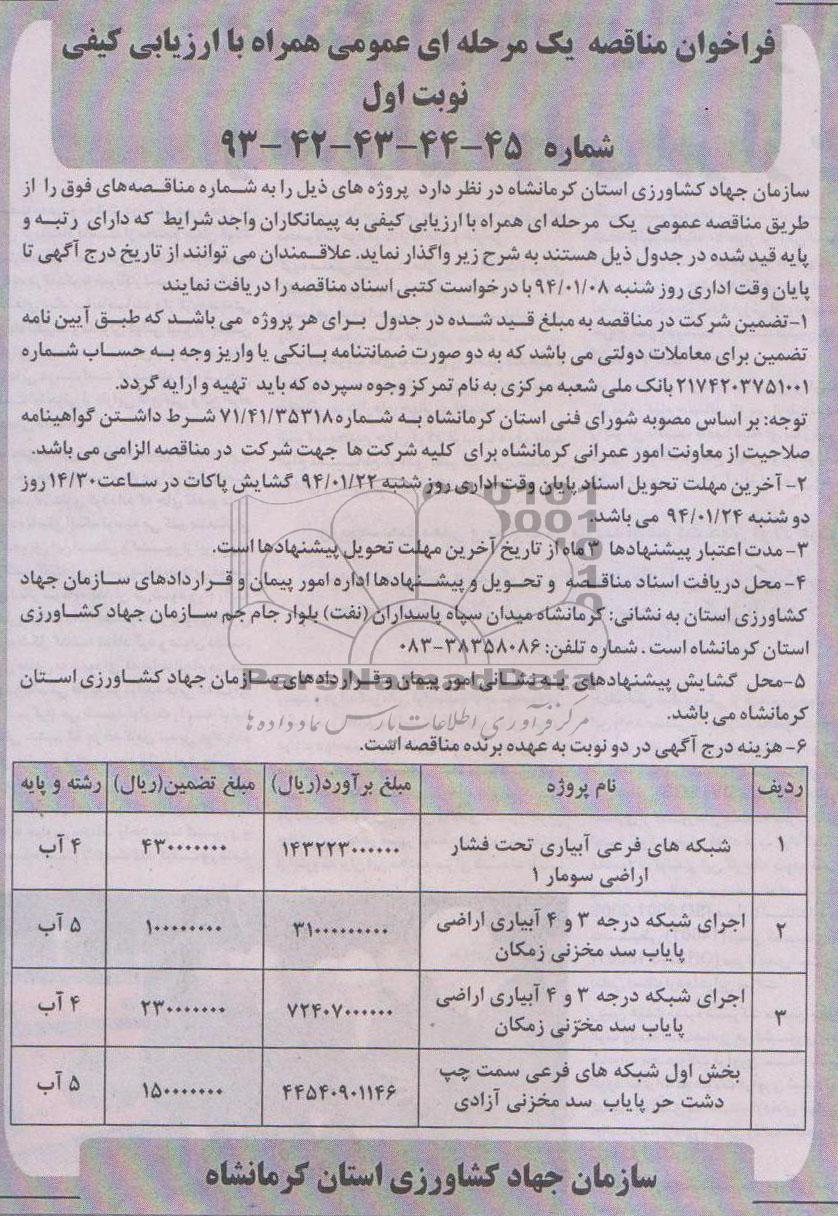 فراخوان مناقصه یک مرحله ای عمومی همراه با ارزیابی کیفی
نوبت اول
شماره ۴۵-۴۴-۴۳-۴۲-۹۳
سازمان جهاد کشاورزی استان کرمانشاه در نظر دارد پروژه های ذیل را به شماره مناقصه‌های فوق را از
طریق مناقصه عمومی یک مرحله ای همراه با ارزیابی کیفی به پیمانکاران واجد شرایط که دارای رتبه و
پایه قید شده در جدول ذیل هستند به شرح زیر واگذار نماید. علاقمندان می توانند از تاریخ درج آگهی تا
پایان وقت اداری روز شنبه ۹۴/۰۱/۰۸ با درخواست کتبی اسناد مناقصه را دریافت نمایند
۱-تضمین شرکت در مناقصه به مبلغ قید شده در جدول برای هر پروژه می باشد که طبق آیین نامه
تضمین برای معاملات دولتی می باشد که به دو صورت ضمانتنامه بانکی یا واریز وجه به حساب شماره
۲۱۷۴۲۰۳۷۵۱۰۰۱ بانک ملی شعبه مرکزی به نام تمرکز وجوه سپرده که باید تهیه و ارایه گردد.
توجه: بر اساس مصوبه شورای فنی استان کرمانشاه به شماره ۷۱/۴۱/۳۵۳۱۸ شرط داشتن گواهینامه
صلاحیت از معاونت امور عمرانی کرمانشاه برای کلیه شرکت ها جهت شرکت در مناقصه الزامی می باشد.
۲- آخرین مهلت تحویل اسناد پایان وقت اداری روز شنبه ۹۴/۰۱/۲۲ گشایش پاکات در ساعت ۱۴/۳۰ روز
دو شنبه ۹۴/۰۱/۲۴ می باشد.
۳- مدت اعتبار پیشنهادها ۳ ماه از تاریخ آخرین مهلت تحویل پیشنهادها است.
۴- محل دریافت اسناد مناقصه و تحویل و پیشنهادها اداره امور پیمان و قراردادهای سازمان جهاد
کشاورزی استان به نشانی: کرمانشاه میدان سپاه پاسداران (نفت) بلوار جام جم سازمان جهاد کشاورزی
استان کرمانشاه است. شماره تلفن: ۳۸۳۵۸۰۸۶-۰۸۳
۵-محل گشایش پیشنهادهای به نشانی امور پیمان و قراردادهای سازمان جهاد کشاورزی استان
کرمانشاه می باشد.
ParsNamadData
مرکز فرآوری اطلاعات پارس نماد داده ها
۶- هزینه درج آگهی در دو نوبت به عهده برنده مناقصه است.
ردیف نام پروژه مبلغ برآورد(ریال) مبلغ تضمین(ریال) رشته و پایه
۱ شبکه های فرعی آبیاری تحت فشار ۱۴۳۲۲۳۰۰۰۰۰۰ ۴۳۰۰۰۰۰۰۰۰ ۴ آب
اراضی سومار ۱
۲ اجرای شبکه درجه ۳ و ۴ آبیاری اراضی ۳۱۰۰۰۰۰۰۰۰۰ ۱۰۰۰۰۰۰۰۰۰ ۵ آب
پایاب سد مخزنی زمکان
۳ اجرای شبکه درجه ۳ و ۴ آبیاری اراضی ۷۲۴۰۷۰۰۰۰۰۰ ۲۳۰۰۰۰۰۰۰۰ ۴ آب
پایاب سد مخزنی زمکان
بخش اول شبکه های فرعی سمت چپ ۴۴۵۴۰۹۰۱۱۴۶ ۱۵۰۰۰۰۰۰۰۰ ۵ آب
دشت حر پایاب سد مخزنی آزادی
سازمان جهاد کشاورزی استان کرمانشاه